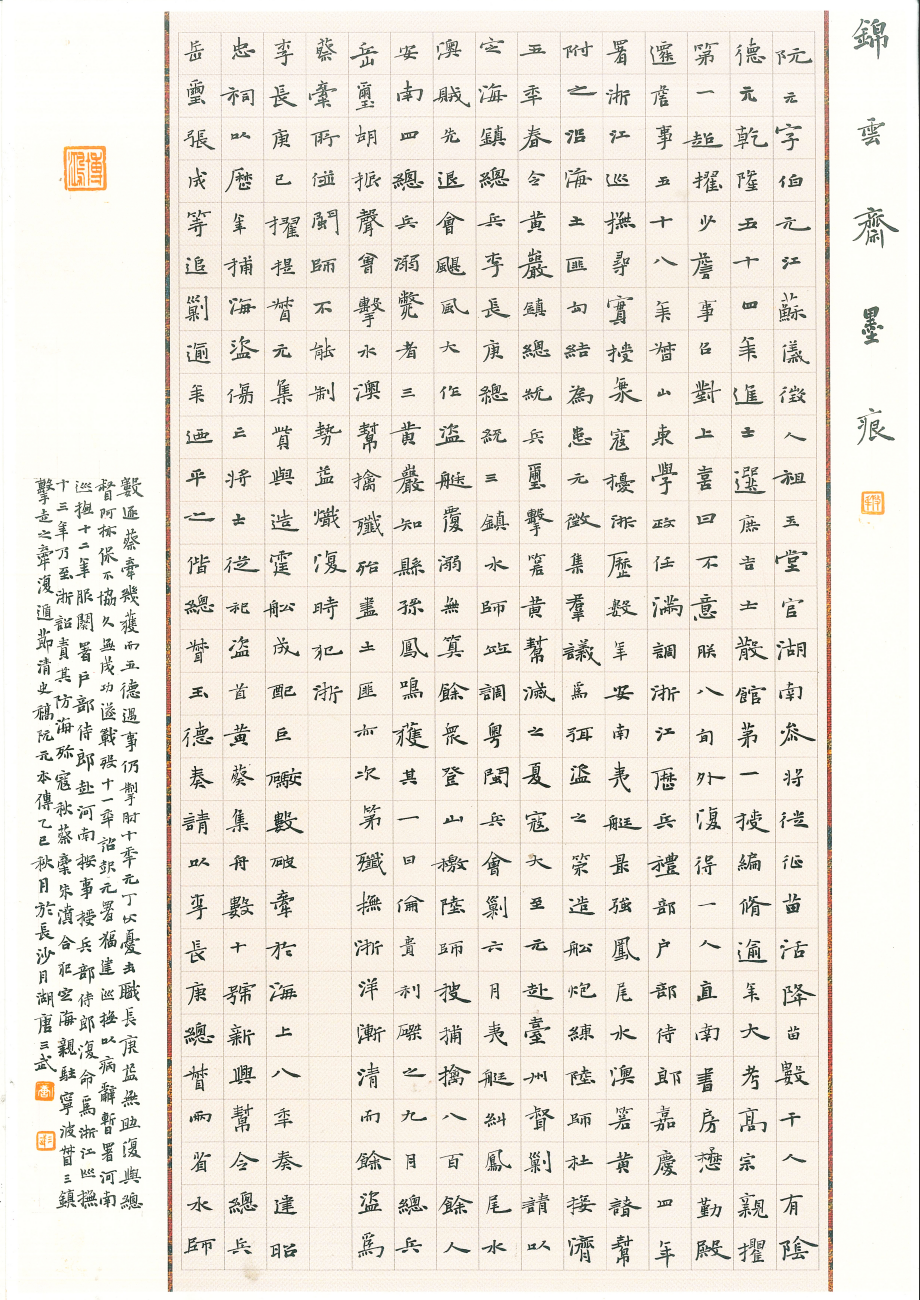 錦雲齋墨痕
阮元字伯元江蘇儀徵人祖玉堂官湖南參將從征苗活降苗數千人有陰
德元乾隆五十四年進士選庶吉士散館第一授編脩逾年大考高宗親擢
第一超擢少詹事召對上喜曰不意朕八旬外復得一人直南書房懋勤殿
遷詹事五十八年督山東學政任滿調浙江歷兵禮部戶部侍郎嘉慶四年
署浙江巡撫尋實授海寇擾浙歷數年安南夷艇最強鳳尾水澳箬黃諸幫
附之沿海土匪勾結為患元徵集羣議為弭盜之策造船炮練陸師杜接濟
五年春令黃巖鎮總統兵璽擊箬黃幫滅之夏寇大至元赴臺州督剿請以
定海鎮總兵李長庚總統三鎮水師竝調粵閩兵會剿六月夷艇糾鳳尾水
澳賊先退會颶風大作盜艇覆溺無算餘眾登山檄陸師搜捕擒八百餘人
安南四總兵溺斃者三黃巖知縣孫鳳鳴獲其一曰倫貴利磔之九月總兵
岳璽胡振聲會擊水澳幫擒殲殆盡土匪亦次第殲撫浙洋漸清而餘盜為
蔡牽所併閩師不能制勢益熾復時犯浙
李長庚已擢提督元集貲與造霆船成配巨礮數破牽於海上八年奏建昭
忠祠以歷年捕海盜傷亡將士從祀盜首黃葵集舟數十號新興幫令總兵
岳璽張成等追剿逾年迺平之偕總督玉德奏請以李長庚總督兩省水師
數逐蔡牽幾獲而玉德遇事仍掣肘十年元丁父憂去職長庚益無助復與總
督阿林保不協久無成功遂戰歿十一年詔起元署福建巡撫以病辭暫署河南
巡撫十二年服闋署戶部侍郎赴河南按事授兵部侍郎復命為浙江巡撫
十三年乃至浙詔責其防海殄寇秋蔡牽朱濆合犯定海親駐寧波督三鎮
擊走之牽復遁節清史稿阮元本傳乙巳秋月於長沙月湖唐三武